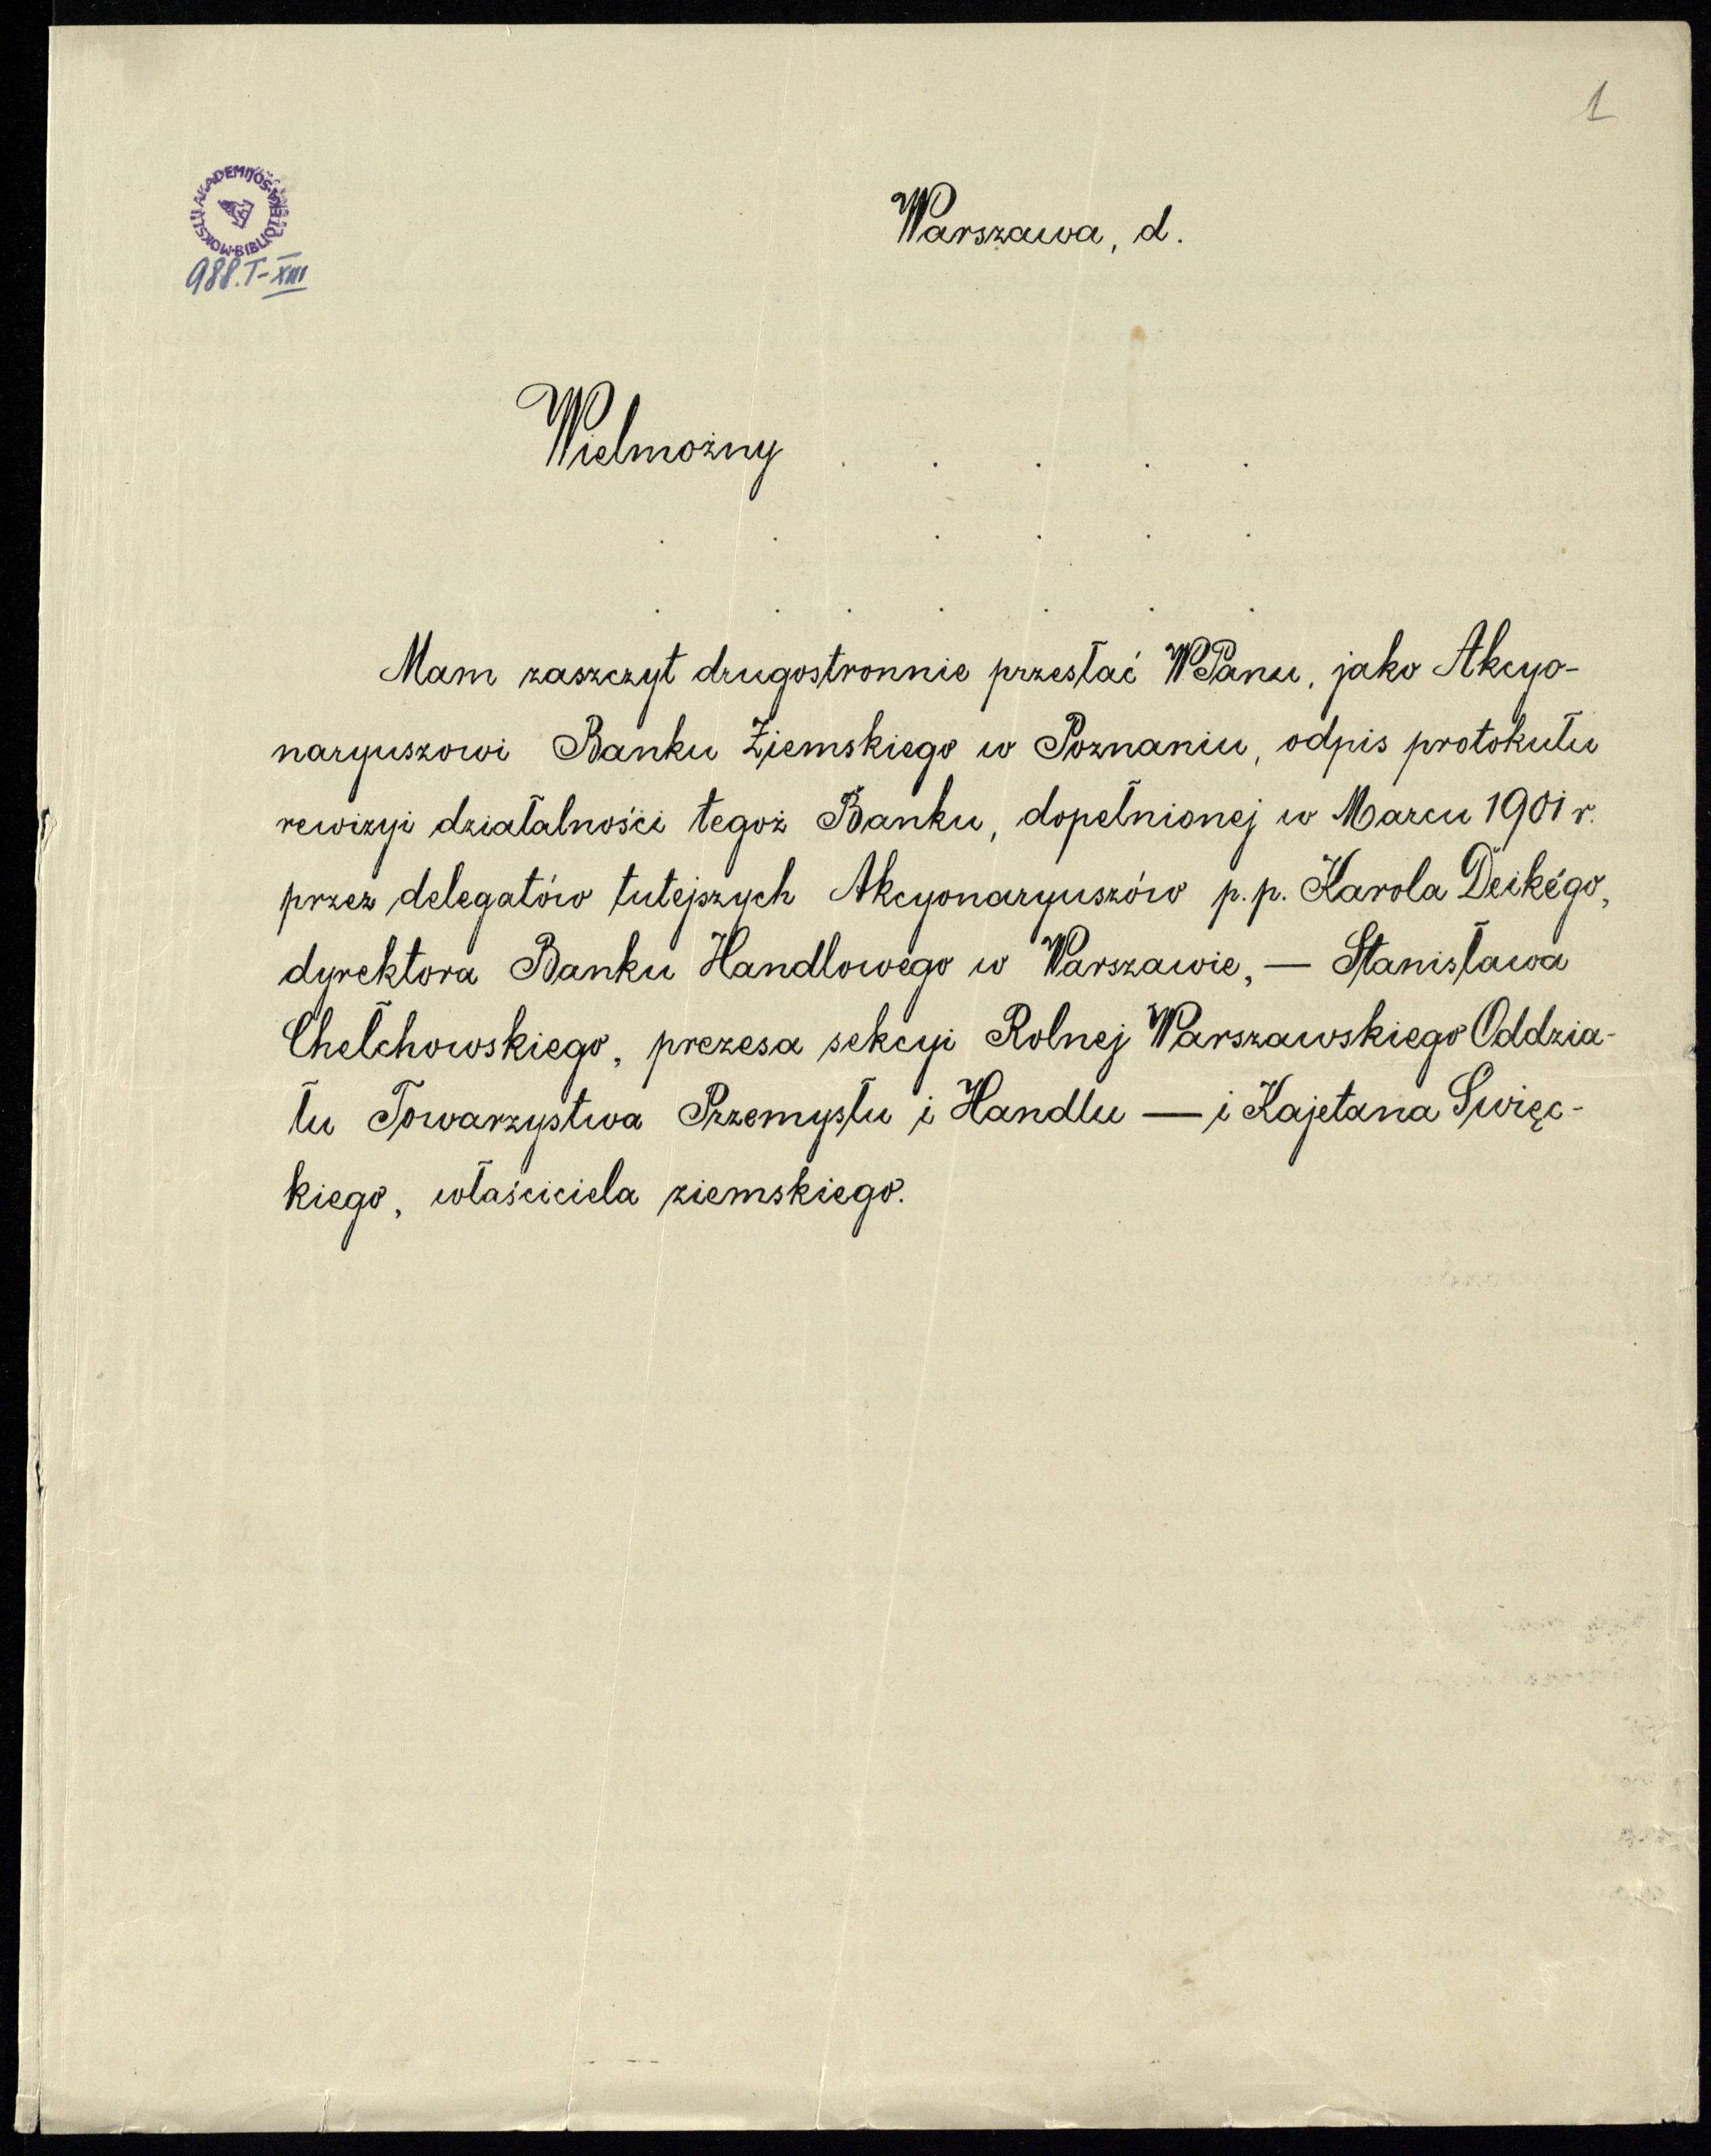 1
MOKSLŲ AKADEMIJOS BIBLIOTEKA
988.I-XIII
Warszawa, d.
Wielmożny . . . . .
. . . . . .
. . . . . . .
Mam zaszczyt drugostronnie przesłać WPanu, jako Akcyo-
naryuszowi Banku Ziemskiego w Poznaniu, odpis protokułu
rewizyi działalności tegoż Banku, dopełnionej w Marcu 1901 r.
przez delegatów tutejszych Akcyonaryuszów p.p. Karola Deikégo,
dyrektora Banku Handlowego w Warszawie, — Stanisława
Chełchowskiego, prezesa sekcyi Rolnej Warszawskiego Oddzia-
łu Towarzystwa Przemysłu i Handlu — i Kajetana Święc-
kiego, właściciela ziemskiego.